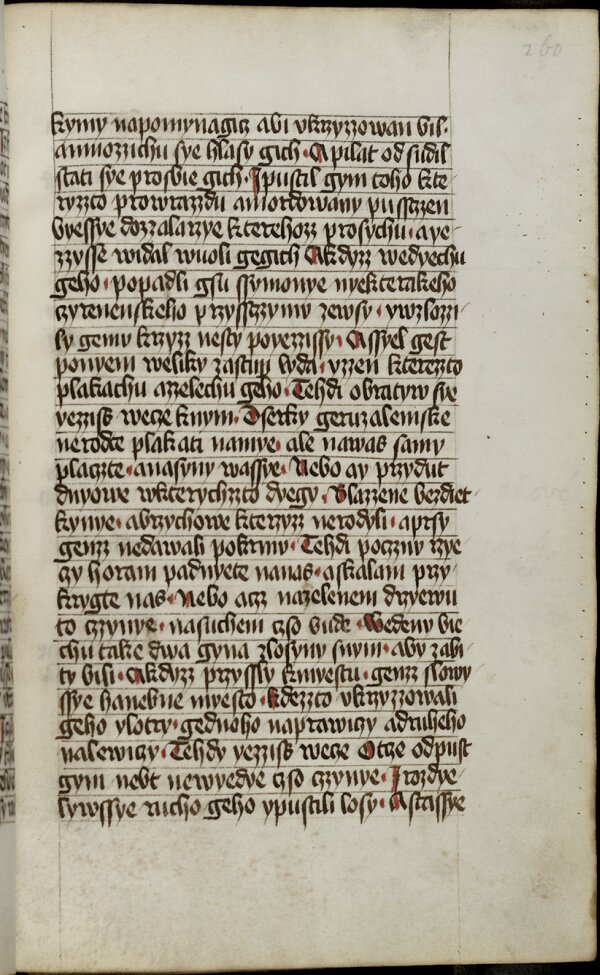 260
kymy napomynagicz abi vkrzyzowan bil·
amnozzichu sye hlasy gich· A pilat od sudil
stati sye prosbie gich· I pustil gym toho kte
ryzzto prowrazzdu a mordowany pusstzen
byessye dozzalarzye kterehozz prosychu· a ye
zzysse widal wuoli gegich Akdyzz wedyechu
geho· popadli gsu ssymonye nyekterakeho
czyrenenskeho przysstzymy zewsy· vwzlozzi
ly gemu krzyzz nesty poyezzissy· A ssyel gest
ponyem weliky zastup lyda· yzzen kterezzto
plakachu azzelechu geho· Tehdi obratyw sye
yezziss wece knym· Dserky geruzalemske
nerodte plakati namye· ale nawas samy
placzte· anasyny wassye· Nebo ay przydut
dnyowe wkterychzzto dyegy· Blazzene bezdiet
kynye· abrzychowe kterzyzz nerodyli· aprsy
genzz nedawali pokrmu· Tehdi poczny rzye
czy horam padnyete nanas· askalam przy
krygte nas· Nebo acz nazelenem drzyewu
to czzynye· nasuchem czso bude· Wedeny bie
chu take dwa gyna zlosyny snym· aby zabi
ty bili· Akdyzz przyssly kmyestu· genzz slowy
ssye hanebne myesto· Kdezzto vkrzyzzowali
geho ylotry· gednoho naprawiczy adruheho
nalewiczy· Tehdy yezziss wece Otcze odpust
gym nebt newyedye czso czzynye· I rozdye
lywssye rucho geho ypustili losy· A stassye